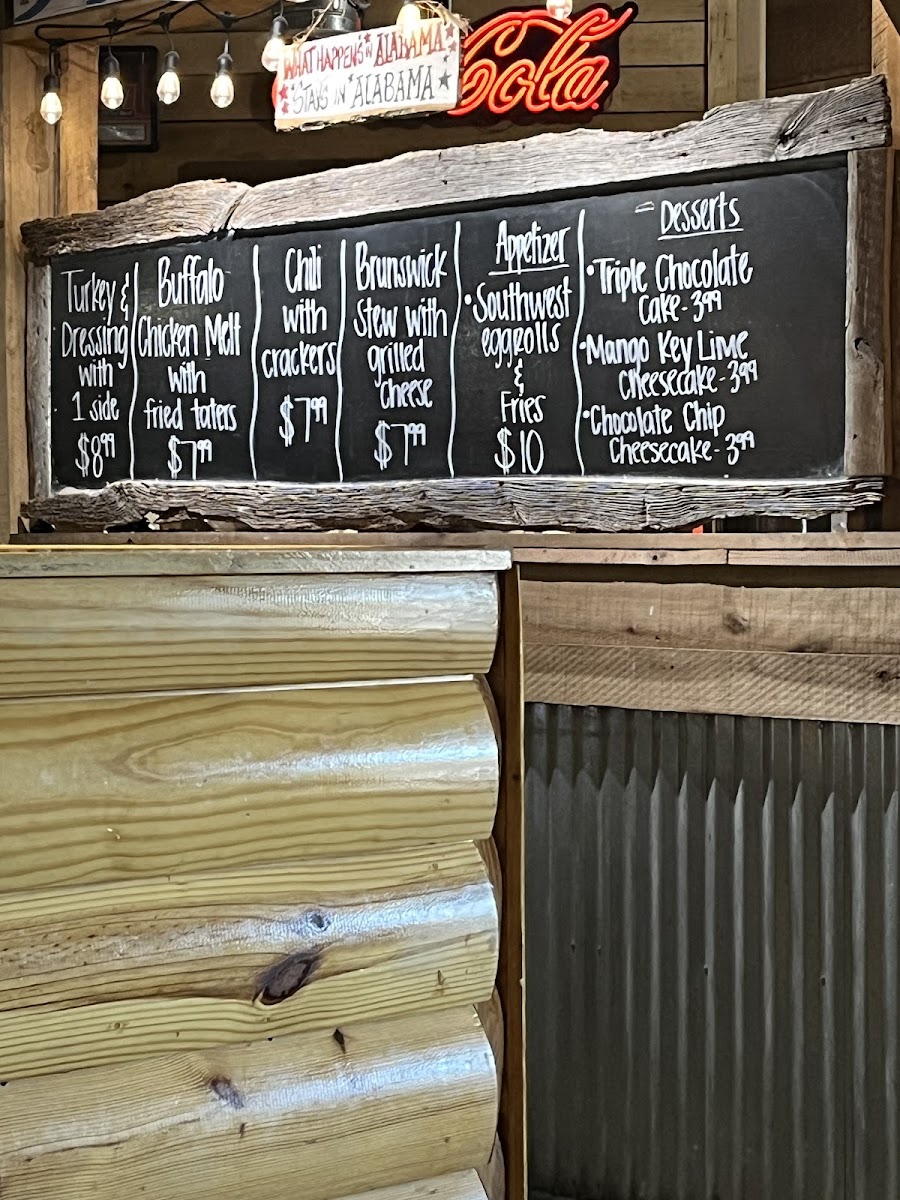 WHAT HAPPENS IN ALABAMA
STAYS IN ALABAMA
Cola
Turkey &
Dressing
with
1 side
$8.99
Buffalo
Chicken Melt
with
fried taters
$7.99
Chili
with
crackers
$7.99
Brunswick
Stew with
grilled
cheese
$7.99
Appetizer
•Southwest
eggrolls
&
Fries
$10
Desserts
•Triple Chocolate
Cake - 3.99
•Mango Key Lime
Cheesecake - 3.99
•Chocolate Chip
Cheesecake - 3.99